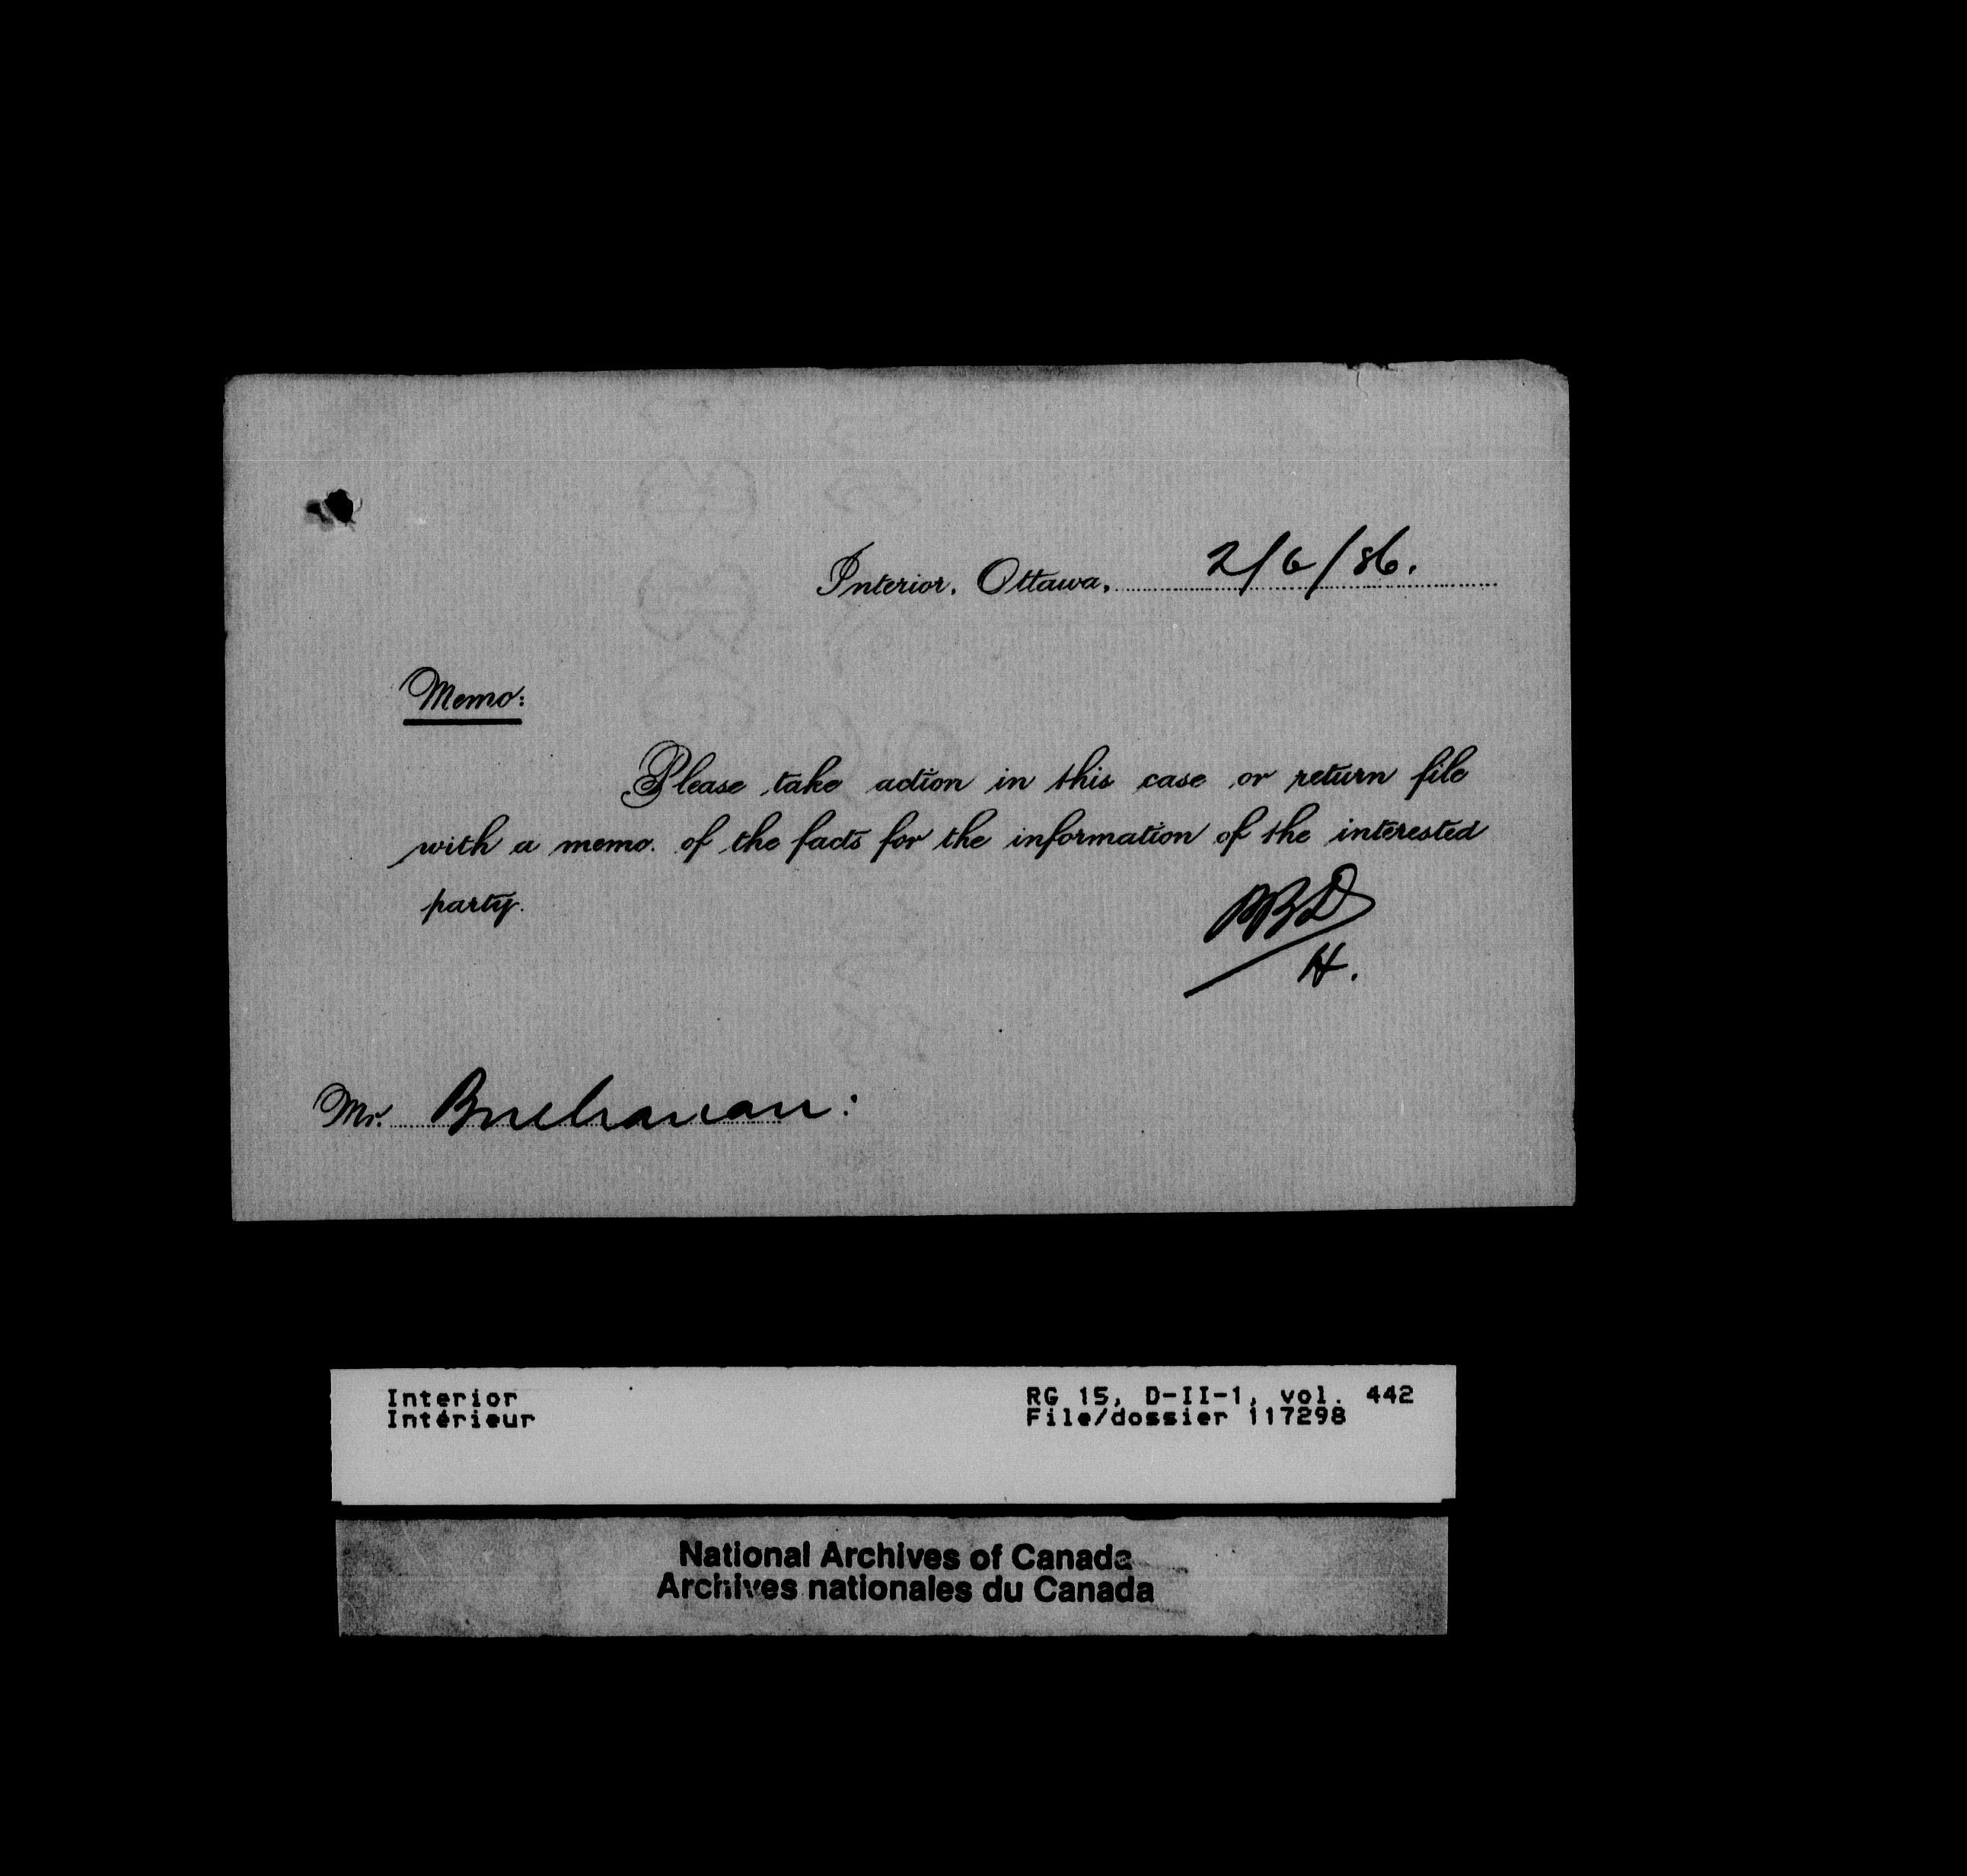 Interior, Ottawa, 2/6/86.
Memo:
Please take action in this case or return file
with a memo. of the facts for the information of the interested
party.
H.
Mr. Buchanan:
Interior
Intérieur
RG 15, D-II-1, vol. 442
File/dossier 117298
National Archives of Canada
Archives nationales du Canada